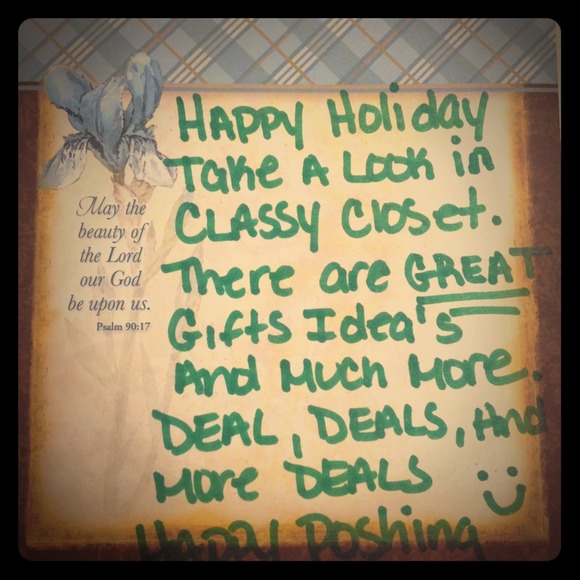 HAPPY Holiday
Take A Look in
CLASSY Closet.
There are GREAT
Gifts Idea's
And Much More.
DEAL, DEALS, And
More DEALS
HAPPY Poshing
May the
beauty of
the Lord
our God
be upon us.
Psalm 90:17